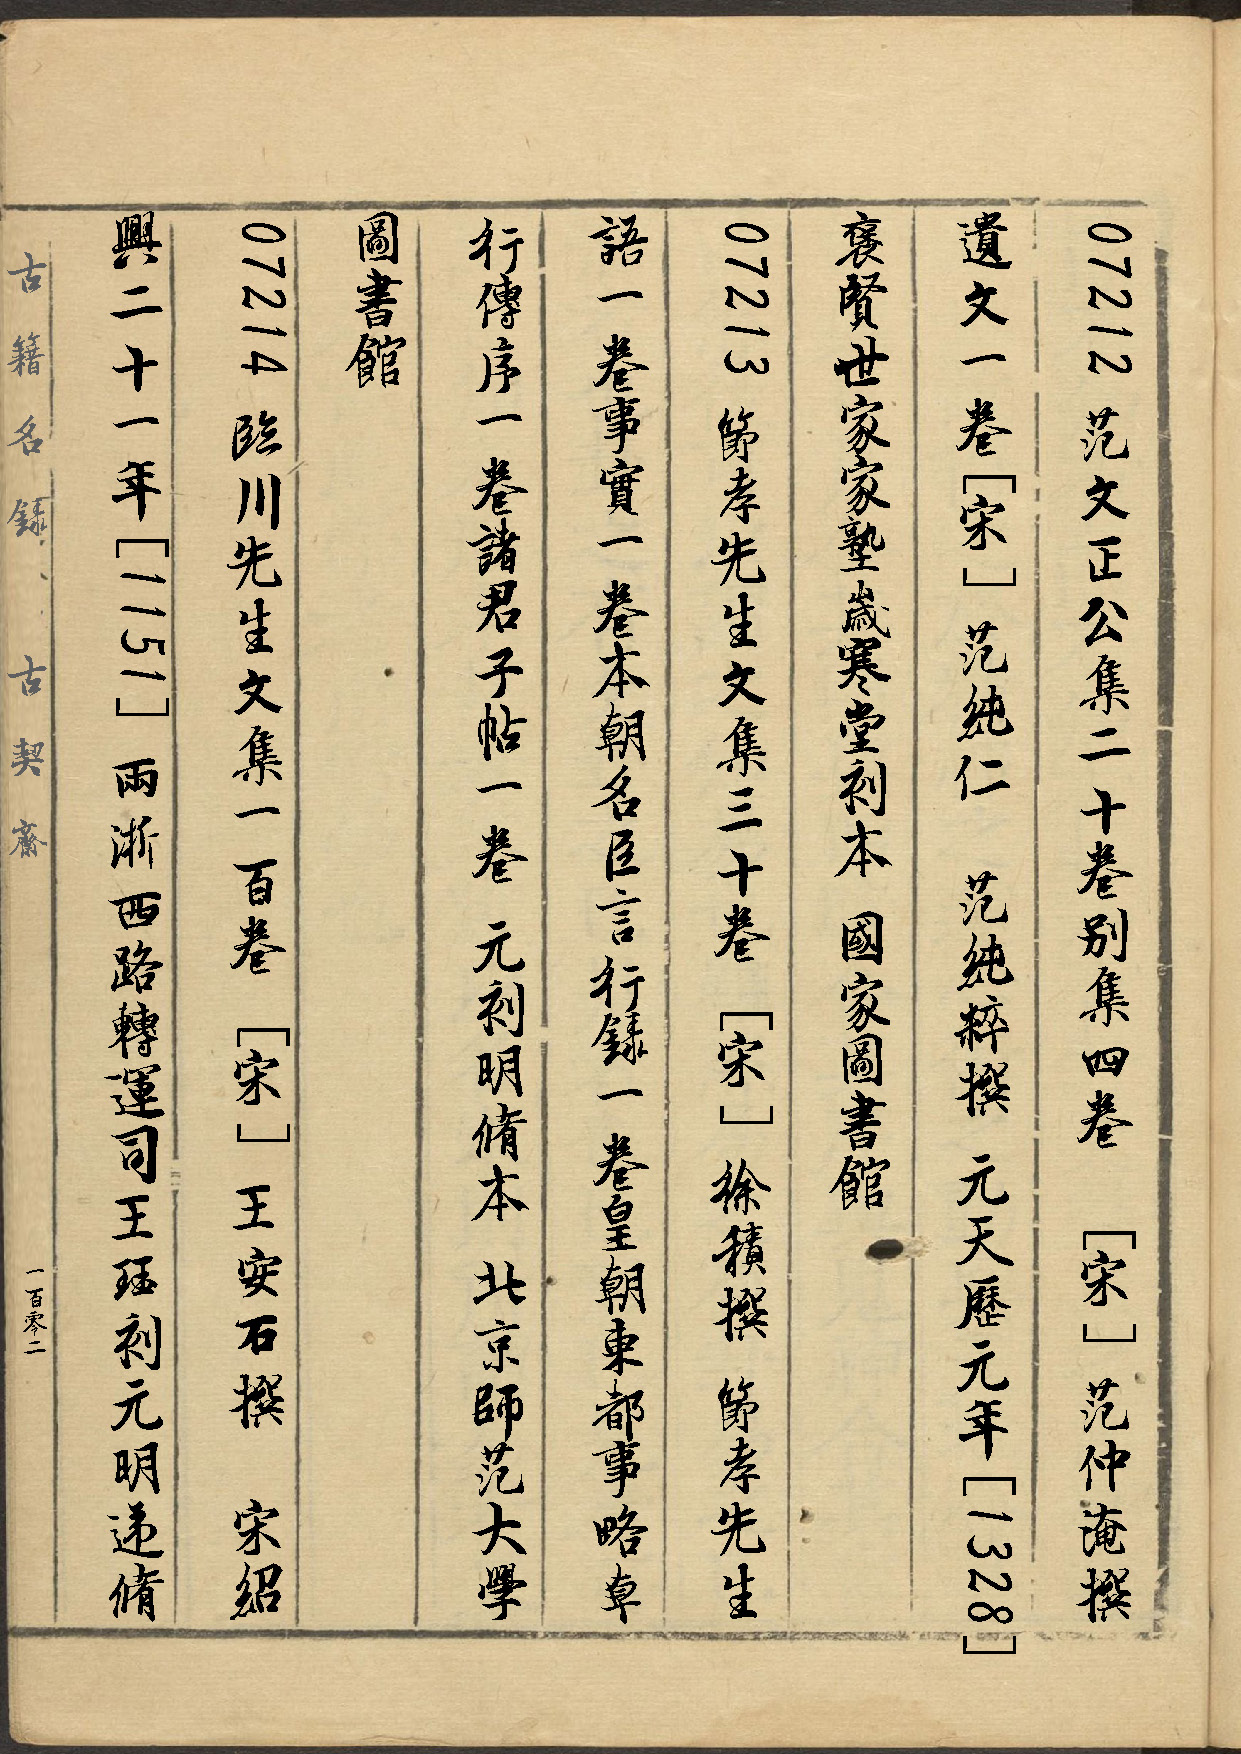 07212 范文正公集二十卷别集四卷 [宋] 范仲淹撰
遺文一卷[宋] 范純仁 范純粹撰 元天歷元年[1328]
褒賢世家家塾歲寒堂刻本 國家圖書館
07213 節孝先生文集三十卷 [宋] 徐積撰 節孝先生
語一卷事實一卷本朝名臣言行錄一卷皇朝東都事略卓
行傳序一卷諸君子帖一卷 元刻明脩本 北京師范大學
圖書館
07214 臨川先生文集一百卷 [宋] 王安石撰 宋紹
興二十一年[1151] 兩浙西路轉運司王珏刻元明遞脩
古籍名錄、、古契齋
一百零二